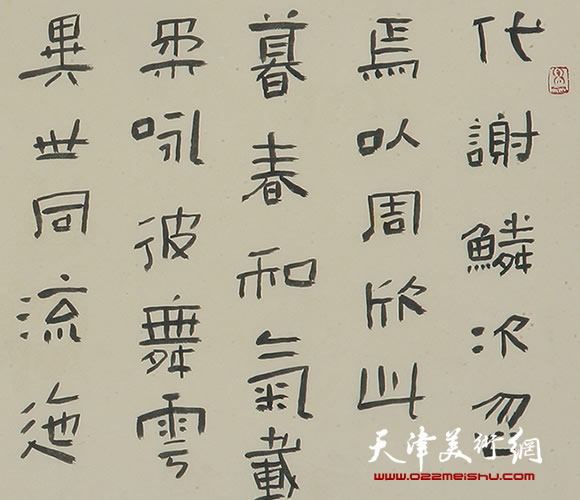 代謝鱗次忽
焉以周欣此
暮春和氣載
柔咏彼舞雩
異世同流迤
天津美術網
www.022meishu.com